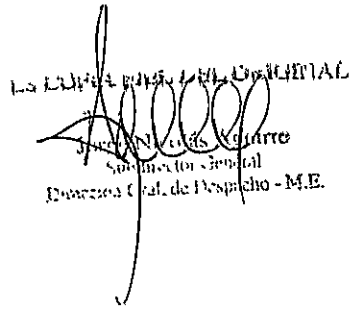 LA COPIA FIEL DEL ORIGINAL
Nicolás Aguirre
Subdirector General
Dirección Gral. de Despacho - M.E.